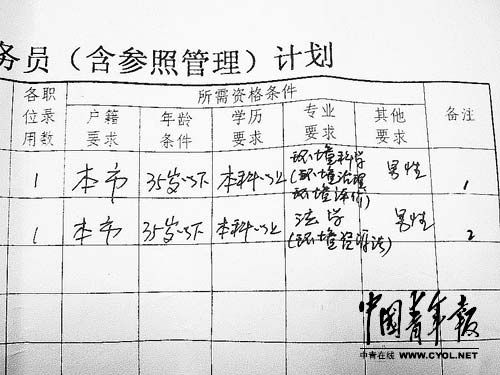 务员（含参照管理）计划
各职
位录
用数
所需资格条件
户籍
要求
年龄
条件
学历
要求
专业
要求
其他
要求
备注
1
本市
35岁以下
本科以上
环境科学
(环境治理
环境评价)
男性
1
1
本市
35岁以下
本科以上
法学
(环境资源法)
男性
2
中国青年报
中青在线 WWW.CYOL.NET